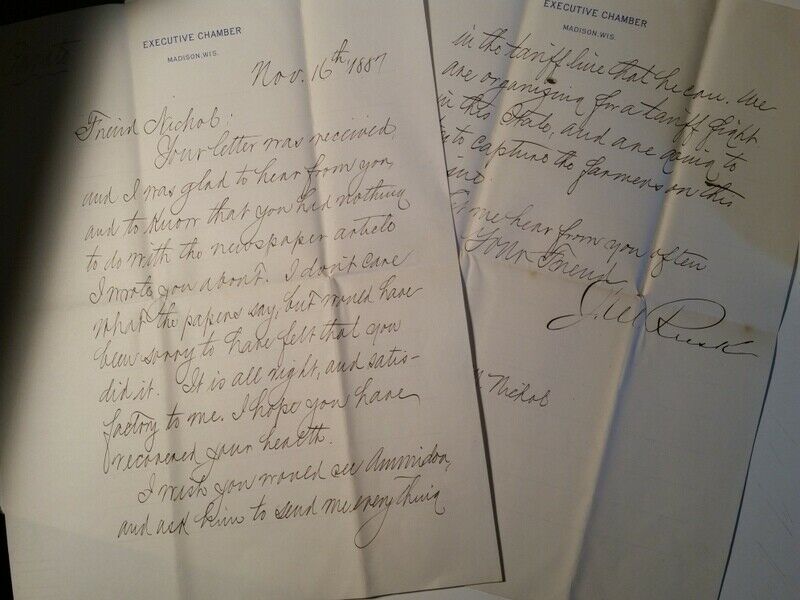 EXECUTIVE CHAMBER
MADISON, WIS.
Nov. 16th 1887
Freind Nichol:
Your letter was received
and I was glad to hear from you,
and to know that you had nothing
to do with the newspaper article
I wrote you about. I don't care
what the papers say, but would have
been sorry to have felt that you
did it. It is all right, and satis-
factory to me. I hope you have
recovered your health.
I wish you would see Ammidon,
and ask him to send me everything
EXECUTIVE CHAMBER
MADISON, WIS.
in the tariff line that he can. We
are organizing for a tariff fight
in this State, and are going to
to capture the farmers on this
me hear from you often
Your Friend
J. M. Rusk
Nichol